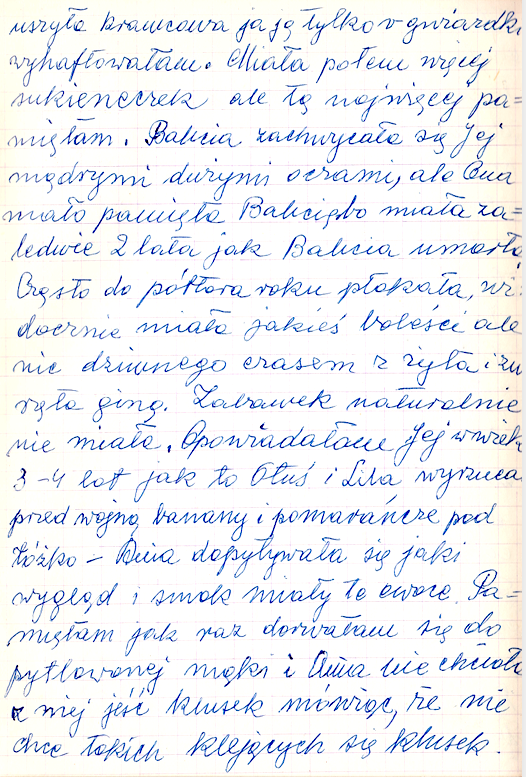 uszyła krawcowa ja ją tylko w gwiazdki
wyhaftowałam. Miała potem więcej
sukieneczek ale tą najwięcej pa=
miętam. Babcia zachwycała się Jej
mądrymi dużymi oczami, ale Ona
mało pamięta Babcię, bo miała za=
ledwie 2 lata jak Babcia umarła
Często do półtora roku płakała, wi=
docznie miała jakieś boleści ale
nic dziwnego czasem z żyta i zu
żęła
Zabawek naturalnie
nie miała. Opowiadałam Jej w wieku
3-4 lat jak to Oluś i Lila wyrzuca
przed wojną banany i pomarańcze pod
łóżko – Ania dopytywała się jaki
wygląd i smak miały te owoce. Pa=
miętam jak raz dorwałam się do
pytlowanej mąki i Ania nie chciała
z niej jeść klusek mówiąc, że nie
chce takich klejących się klusek.